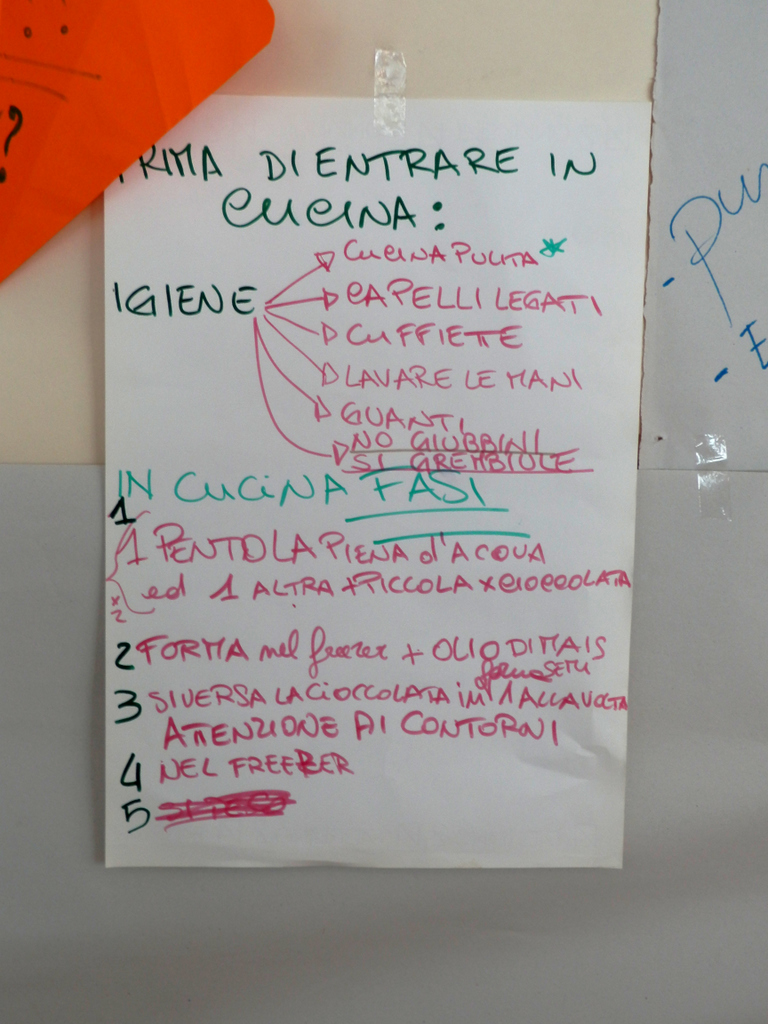 ?
PRIMA DI ENTRARE IN
CUCINA:
IGIENE
CUCINA PULITA *
CAPELLI LEGATI
CUFFIETTE
LAVARE LE MANI
GUANTI
NO GIUBBINI
SI GREMBIULE
IN CUCINA FASI
1
1 PENTOLA PIENA d'ACQUA
ed 1 ALTRA + PICCOLA x CIOCCOLATA
x2
2 FORMA nel freezer + OLIO DI MAIS
SEMI
3 SI VERSA LA CIOCCOLATA in 1 ALLA VOLTA
ATTENZIONE AI CONTORNI
4 NEL FREEZER
5
- pu
- E